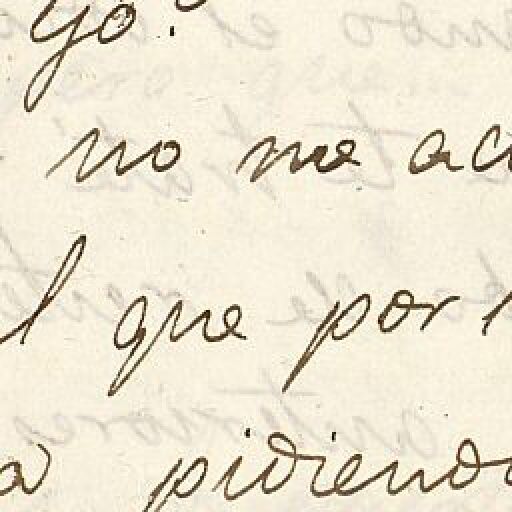 yo?
no me ac
l que por
a pidiendo